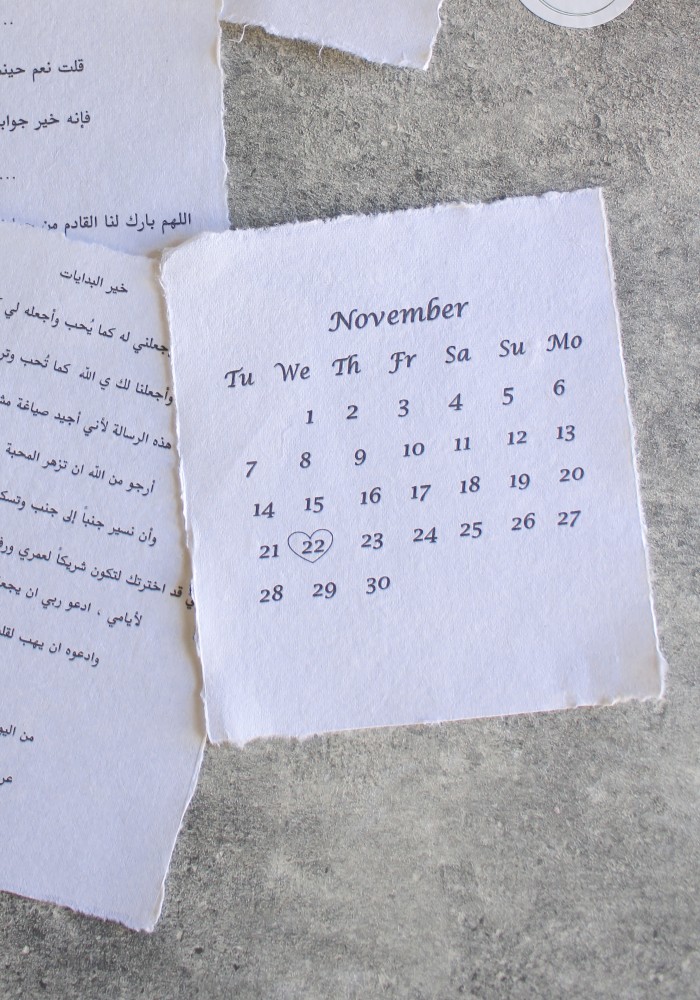 ...
قلت نعم
فإنه خير
...
اللهم بارك لنا القادم من
خير البدايات
له كما يُحب وأجعله لي
وأجعلنا لك ي الله كما تُحب
هذه الرسالة لأني أجيد صياغة
أرجو من الله ان تزهر المحبة
وأن نسير جنباً إلى جنب
قد اخترتك لتكون شريكاً لعمري
لأيامي ، ادعو ربي ان
وادعوه ان يهب
من
November
Tu We Th Fr Sa Su Mo
1 2 3 4 5 6
7 8 9 10 11 12 13
14 15 16 17 18 19 20
21 22 23 24 25 26 27
28 29 30